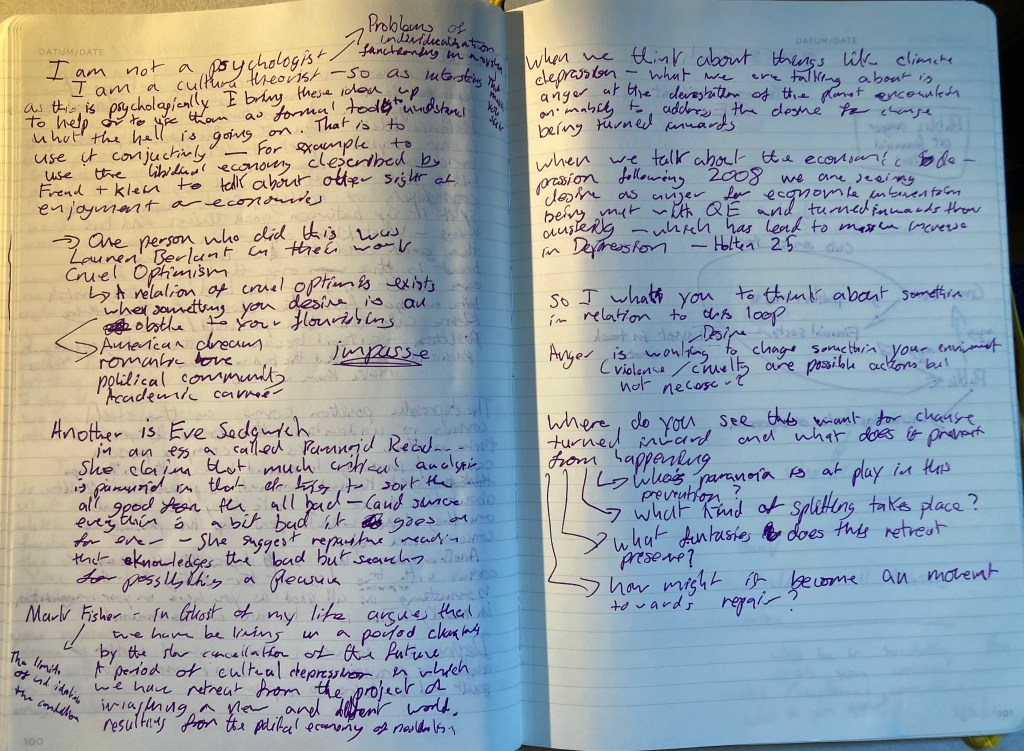 DATUM/DATE
Problems of
individualisation
functioning in a
I am not a psychologist
I am a culture theorist – so as interesting
as this is psychologically I bring these idea up
to help us to use them as formal tools to understand
what the hell is going on. That is to
use it conjuctivly – For example to
use the libidinal economy described by
Freud + Klein to talk about other sight of
enjoyment or economies
→ One person who did this was
Lauren Berlant in their work
Cruel Optimism
↳ A relation of cruel optimism exists
when something you desire is an
obstacle to your flourishing
American dream
romantic love
impasse
political community
Academic career
Another is Eve Sedgwich
in an essa called Paranoid Read...
She claims that much critical analysis
is paranoid in that it tries to sort the
all good from the all bad – (and since
everything is a bit bad it goes on
for ever – She suggest reparative reading
that aknowledges the bad but searches
for possibilities a pleasure
Mark Fisher – in Ghost of my life argues that
we have be living in a period
by the slow cancellation of the future
A period of cultural depression in which
we have retreat from the project of
a new and different world.
resulting from the political economy of
The limits
of
the condition
100
DATUM/DATE
When we think about things like climate
depression – what we are talking about is
anger at the devastation of the planet
to address the desire for change
being turned inwards
when we talk about the economic de–
pression following 2008 we are seeing
desire as anger for economic intervention
being met with QE and turned inwards through
austerity – which has lead to massive increase
in Depression – 25
So I want you to think about somethin
in relation to this loop
Desire
Anger is wanting to change somethin your enviroment
(violence / cruelty are possible actions but
not necessary?
Where do you see this want for change
turned inward and what does it prevent
from happening
↳ Whose paranoia is at play in this
prevention?
↳ what kind of splitting takes place?
↳ what fantasies does this retreat
preserve?
↳ how might it become an movent
towards repair?